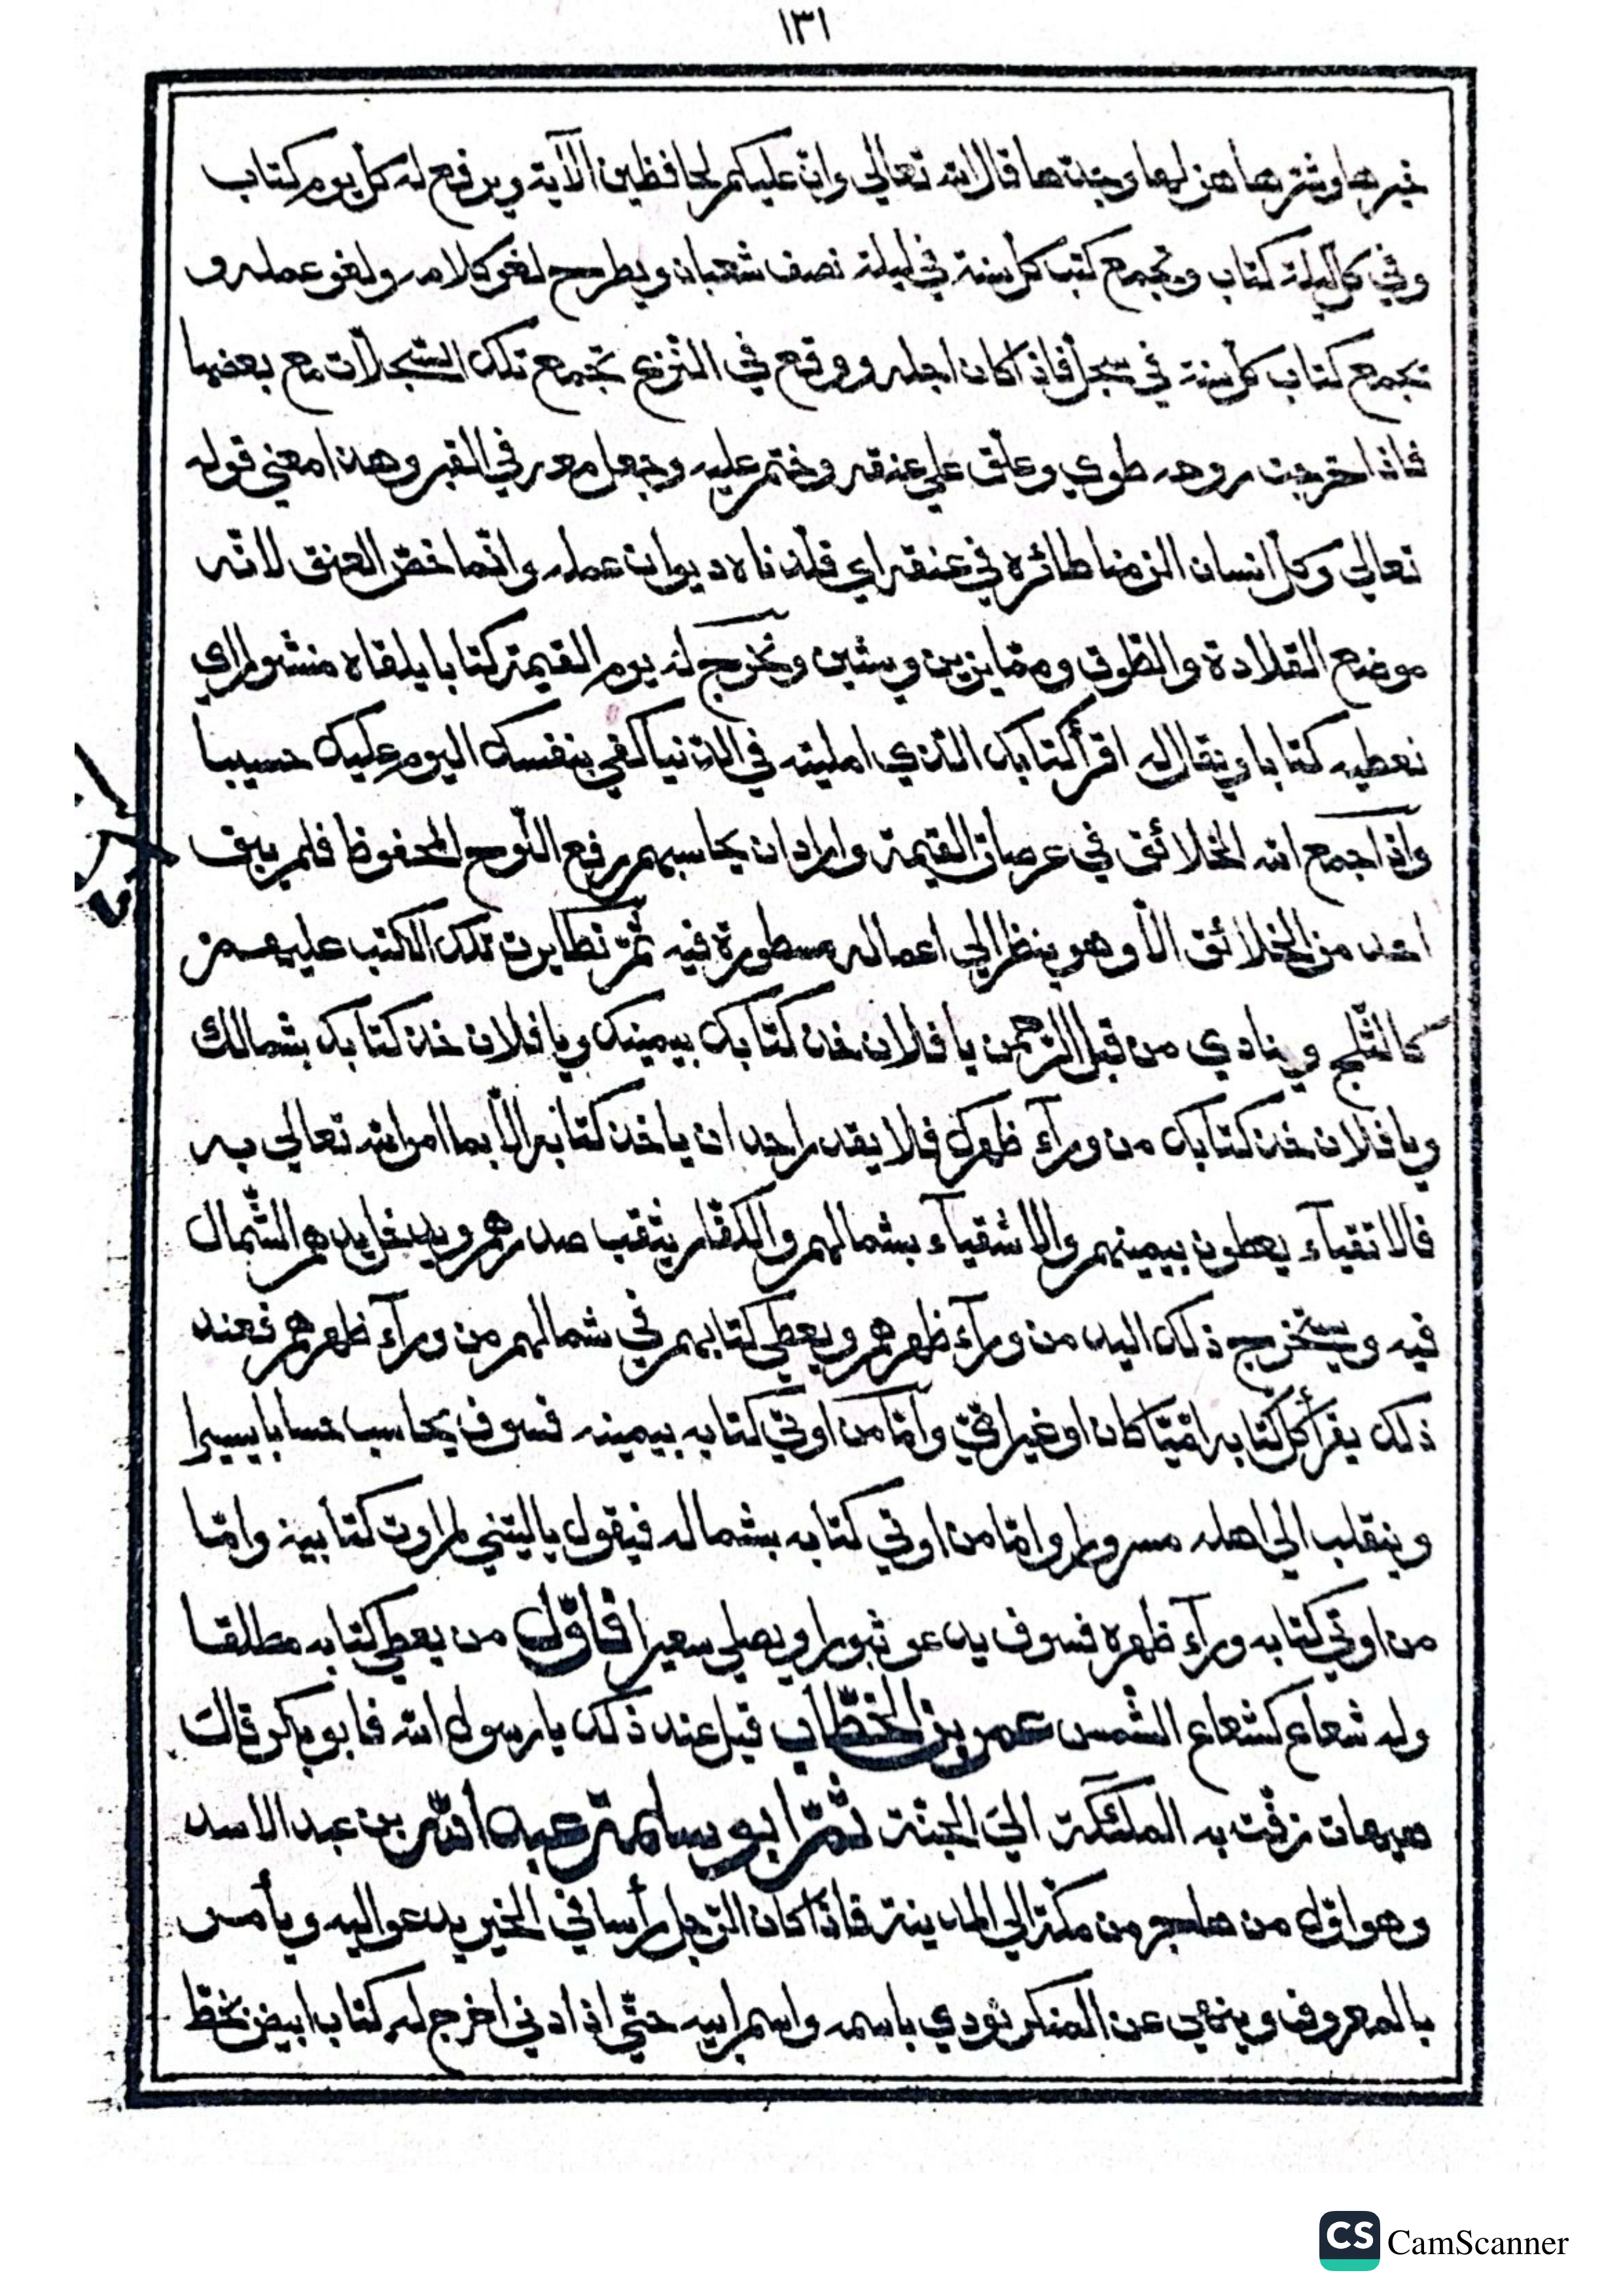 ١٣١
خيرها وشرها هزلها وجدها قال الله تعالى وان عليكم لحافظين الآية ويرفع له كل يوم كتاب
وفي كل ليلة كتاب وتجمع كتب كل سنة في ليلة نصف شعبان ويطرح لغو كلامه ولغو عمله و
تجمع كتاب كل سنة في سجل فاذا كان اجله ووقع في النزع تجمع تلك السجلات مع بعضها
فاذا خرجت روحه طوي وعلق علي عنقه وختم عليه وجعل معه في القبر وهذا معني قوله
تعالي وكل انسان الزمناه طائره في عنقه اي قلدناه ديوان عمله وانما خص العنق لانه
موضع القلادة والطوق ومما يزين ويشين ونخرج له يوم القيمة كتابا يلقاه منشورا اي
نعطيه كتابا ويقال له اقرأ كتابك الذي امليته في الدنيا كفي بنفسك اليوم عليك حسيبا
واذا جمع الله الخلائق في عرصات القيمة واراد ان يحاسبهم رفع اللوح المحفوظ فلم يبق
احد من الخلائق الا وهو ينظر الي اعماله مسطورة فيه ثم تطايرت تلك الكتب عليهم
كالثلج وينادي من قبل الرحمن يا فلان خذ كتابك بيمينك ويا فلان خذ كتابك بشمالك
ويا فلان خذ كتابك من ورآء ظهرك فلا يقدر احد ان ياخذ كتابه الا بما امر الله تعالي به
فالاتقيآء يعطون بيمينهم والاشقيآء بشمالهم والكفار يثقب صدرهم ويدخل يدهم الشمال
فيه ويستخرج ذلك اليد من ورآء ظهرهم ويعطي كتابهم في شمالهم من ورآء ظهرهم فعند
ذلك يقرأ كل كتابه اميا كان او غير امي واما من اوتي كتابه بيمينه فسوف يحاسب حسابا يسيرا
وينقلب الي اهله مسرورا واما من اوتي كتابه بشماله فيقول يا ليتني لم اوت كتابيه واما
من اوتي كتابه ورآء ظهره فسوف يدعو ثبورا ويصلي سعيرا فاول من يعطي كتابه مطلقا
وله شعاع كشعاع الشمس عمر بن الخطاب قيل عند ذلك يا رسول الله فابو بكر قال
هيهات زفت به الملئكة الي الجنة ثم ابو سلمة عبد الله بن عبد الاسد
وهو اول من هاجر من مكة الي المدينة فاذا كان الرجل رأسا في الخير يدعو اليه ويأمر
بالمعروف وينهي عن المنكر نودي باسمه واسم ابيه حتي اذا دني اخرج له كتاب ابيض بخط
CS CamScanner